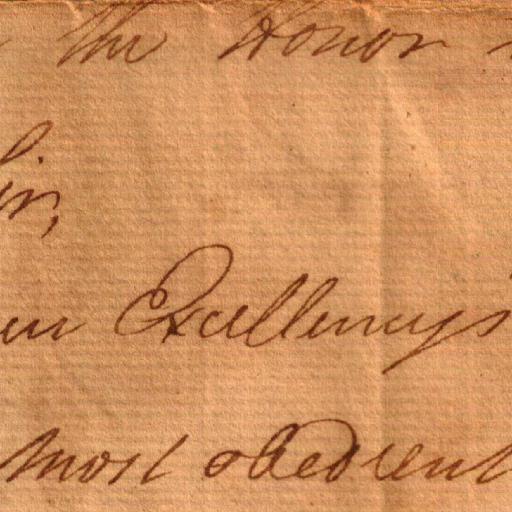 the Honor
Sir,
Excellencys
most obedient